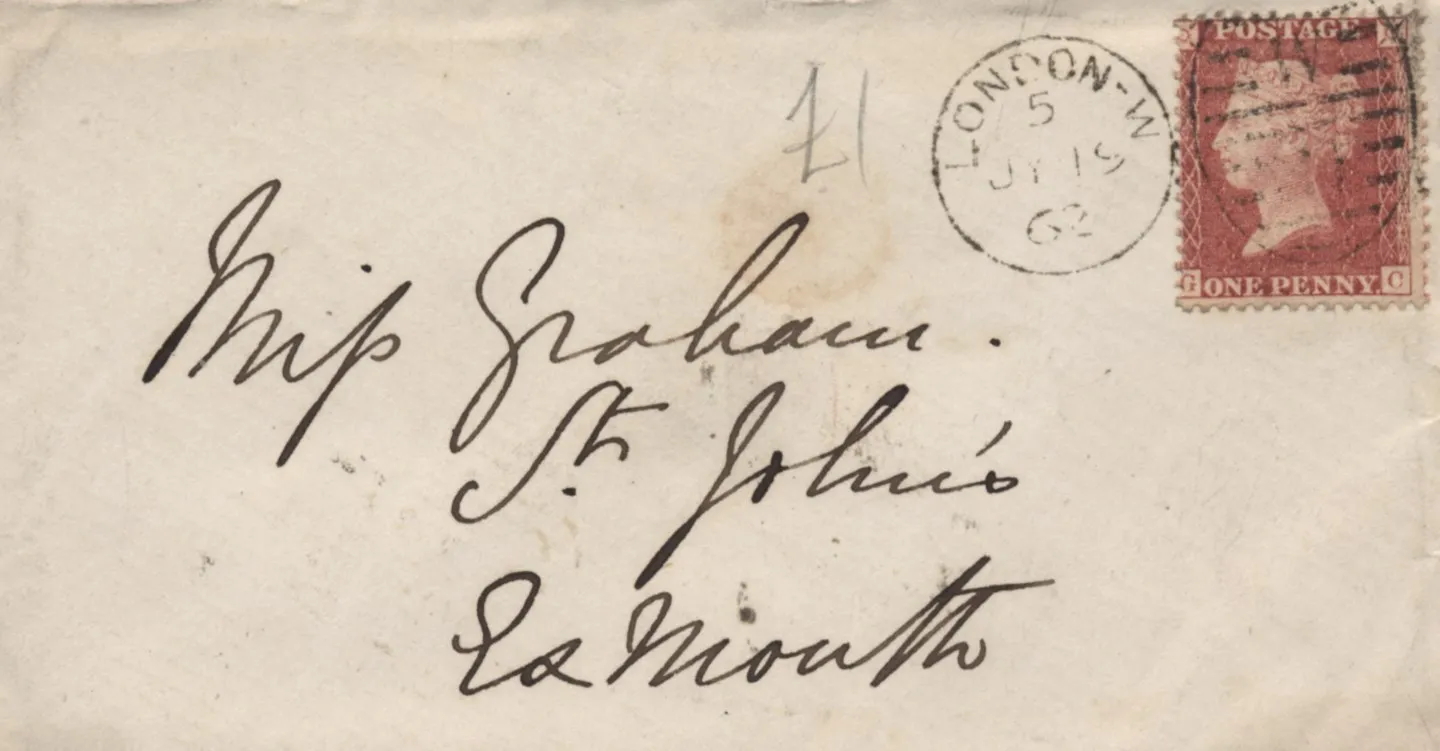 £1
LONDON-W
5
JY 19
62
POSTAGE
W
G ONE PENNY. C
Miss Graham.
St. John's
Exmouth